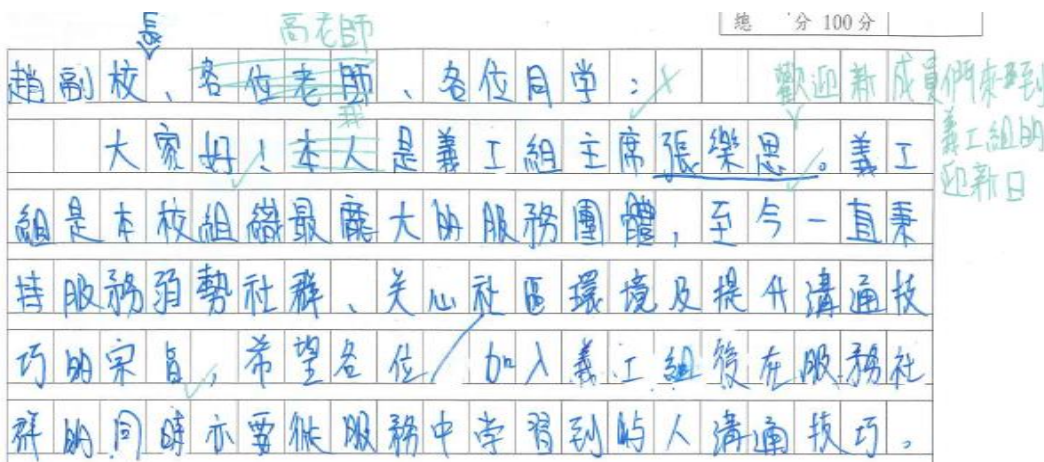 總 分 100分
長 高老師
趙副校、各位老師、各位同学：
歡迎新成員們來到義工組的迎新日
我
大家好！本人是義工組主席張樂思。義工
組是本校組織最龐大的服務團體，至今一直秉
持服務弱勢社群、关心社區環境及提升溝通技
巧的宗旨，希望各位 加入義工組後在服務社
群的同時亦要從服務中学習到與人溝通技巧。